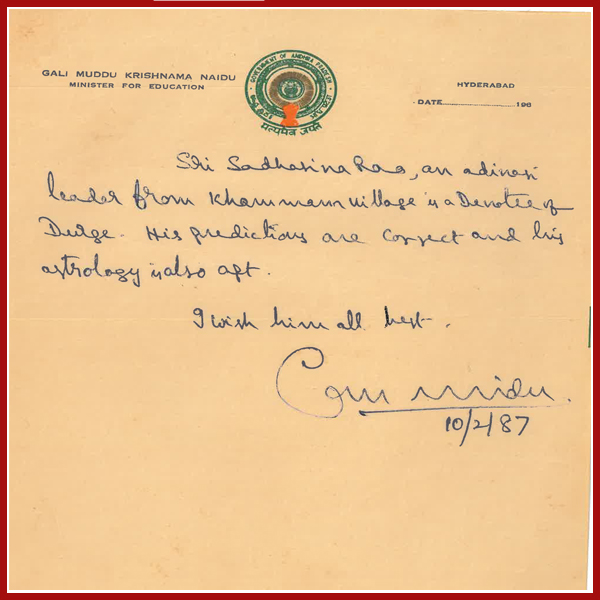 GALI MUDDU KRISHNAMA NAIDU
MINISTER FOR EDUCATION
GOVERNMENT OF ANDHRA PRADESH
सत्यमेव जयते
HYDERABAD
DATE 198
Sri Sadhasiva Rao, an adivasi
leader from Khammam village is a Devotee of
Durga. His predictions are correct and his
astrology is also apt.
I wish him all best.
10/2/87